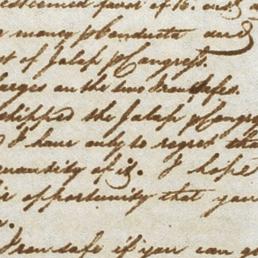 esteemed favor of 16. and
money & Conducta and
st of Jalap p Congress.
arges on the two Iron safes.
shipped the Jalap p Congre
I have only to regret tha
quantity of it. I hope
opportunity that you
Iron safe if you can g